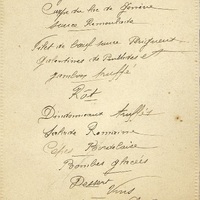 du lac de Genève
Sauce Remoulade
Filet de Bœuf sauce Périgueux
Galantines de Poulardes et
jambon truffé
Rôt
Dindonneaux truffés
Salade Romaine
Cèpes Bordelaise
Bombes glacées
Dessert
Vins